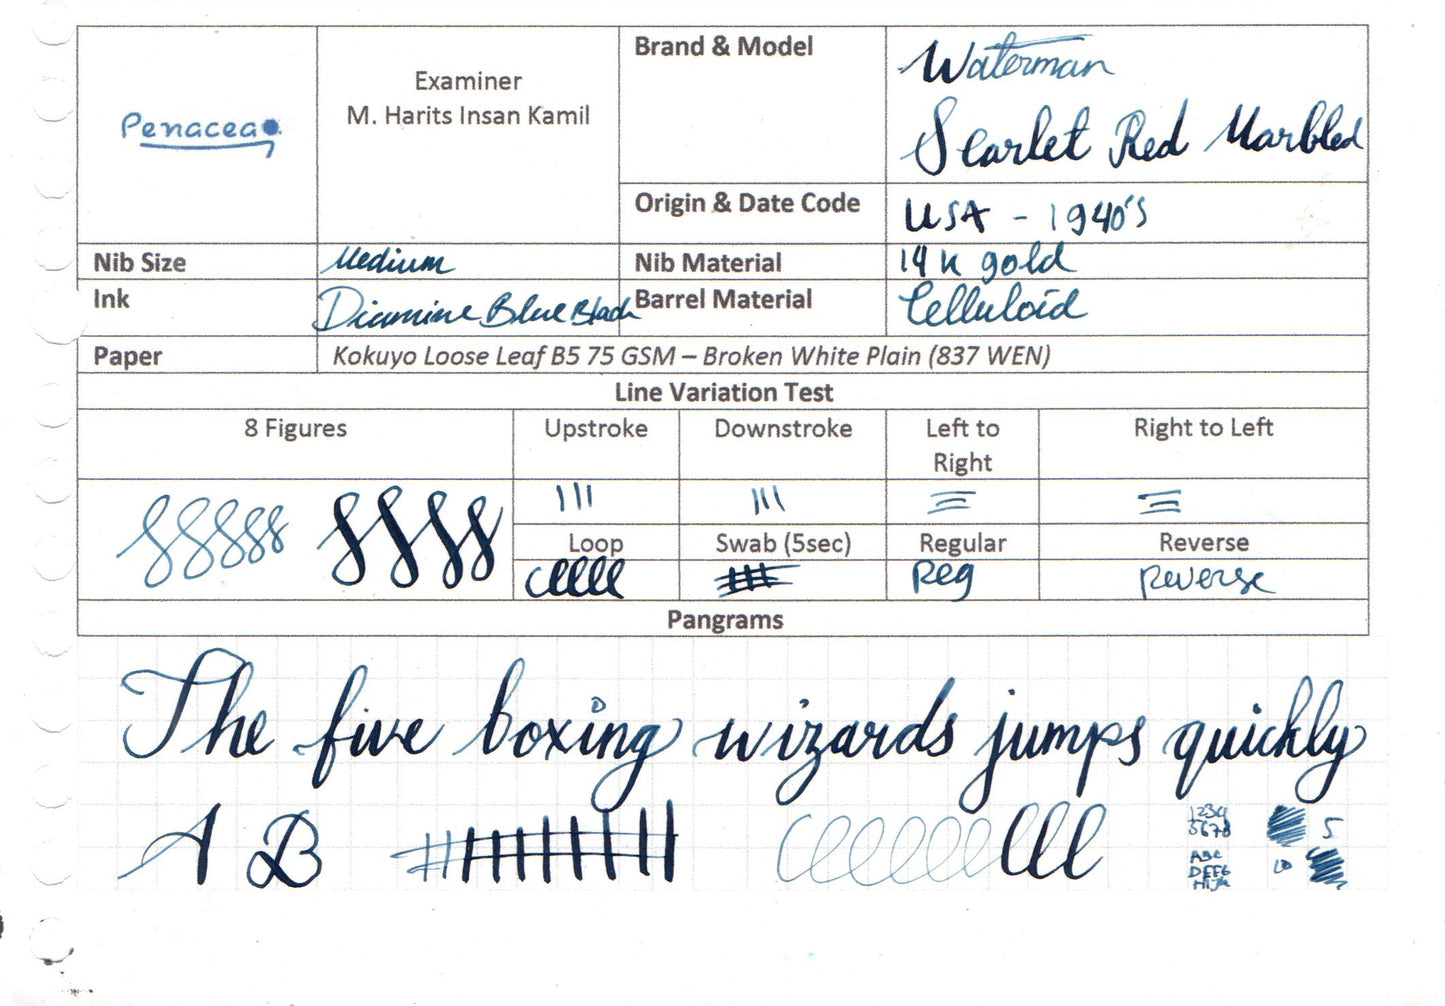 Penacea
Examiner
M. Harits Insan Kamil
Brand & Model
Waterman
Scarlet Red Marbled
Origin & Date Code
USA - 1940's
Nib Size
Medium
Nib Material
14 K gold
Ink
Diamine Blue Black
Barrel Material
Celluloid
Paper
Kokuyo Loose Leaf B5 75 GSM – Broken White Plain (837 WEN)
Line Variation Test
8 Figures
Upstroke
Downstroke
Left to
Right
Right to Left
Loop
Swab (5sec)
Regular
Reverse
Reg
Reverse
Pangrams
The five boxing wizards jumps quickly
A B
1234
5678
5
ABC
DEFG
HIJK
10